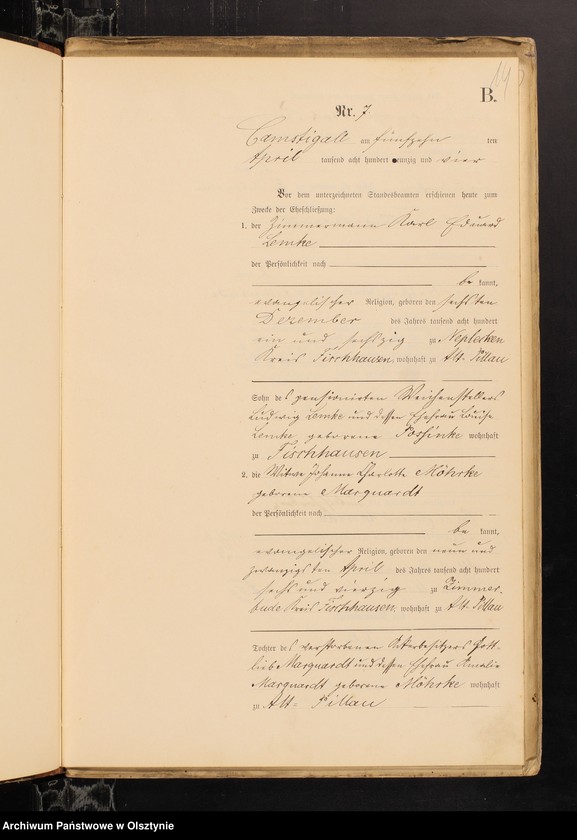 B.
Nr. 7
Camstigall am fünfzehn ten
April tausend acht hundert neunzig und vier
Vor dem unterzeichneten Standesbeamten erschienen heute zum
Zwecke der Eheschließung:
1. der Zimmermann Karl Eduard
Lemke
der Persönlichkeit nach
be kannt,
evangelischer Religion, geboren den sechsten
Dezember des Jahres tausend acht hundert
ein und sechszig zu Neplecken
Kreis Fischhausen, wohnhaft zu Alt-Pillau
Sohn des pensionirten Weichenstellers
Ludwig Lemke und dessen Ehefrau Louise
Lemke geborene wohnhaft
zu Fischhausen
2. die Witwe Johanne Charlotte Möhrke
geborene Marquardt
der Persönlichkeit nach
be kannt,
evangelischer Religion, geboren den neun und
zwanzigsten April des Jahres tausend acht hundert
sechs und vierzig zu Zimmer-
bude Kreis Fischhausen, wohnhaft zu Alt-Pillau
Tochter des verstorbenen Gott-
lieb Marquardt und dessen Ehefrau Amalie
Marquardt geborene Möhrke wohnhaft
zu Alt-Pillau
Archiwum Państwowe w Olsztynie